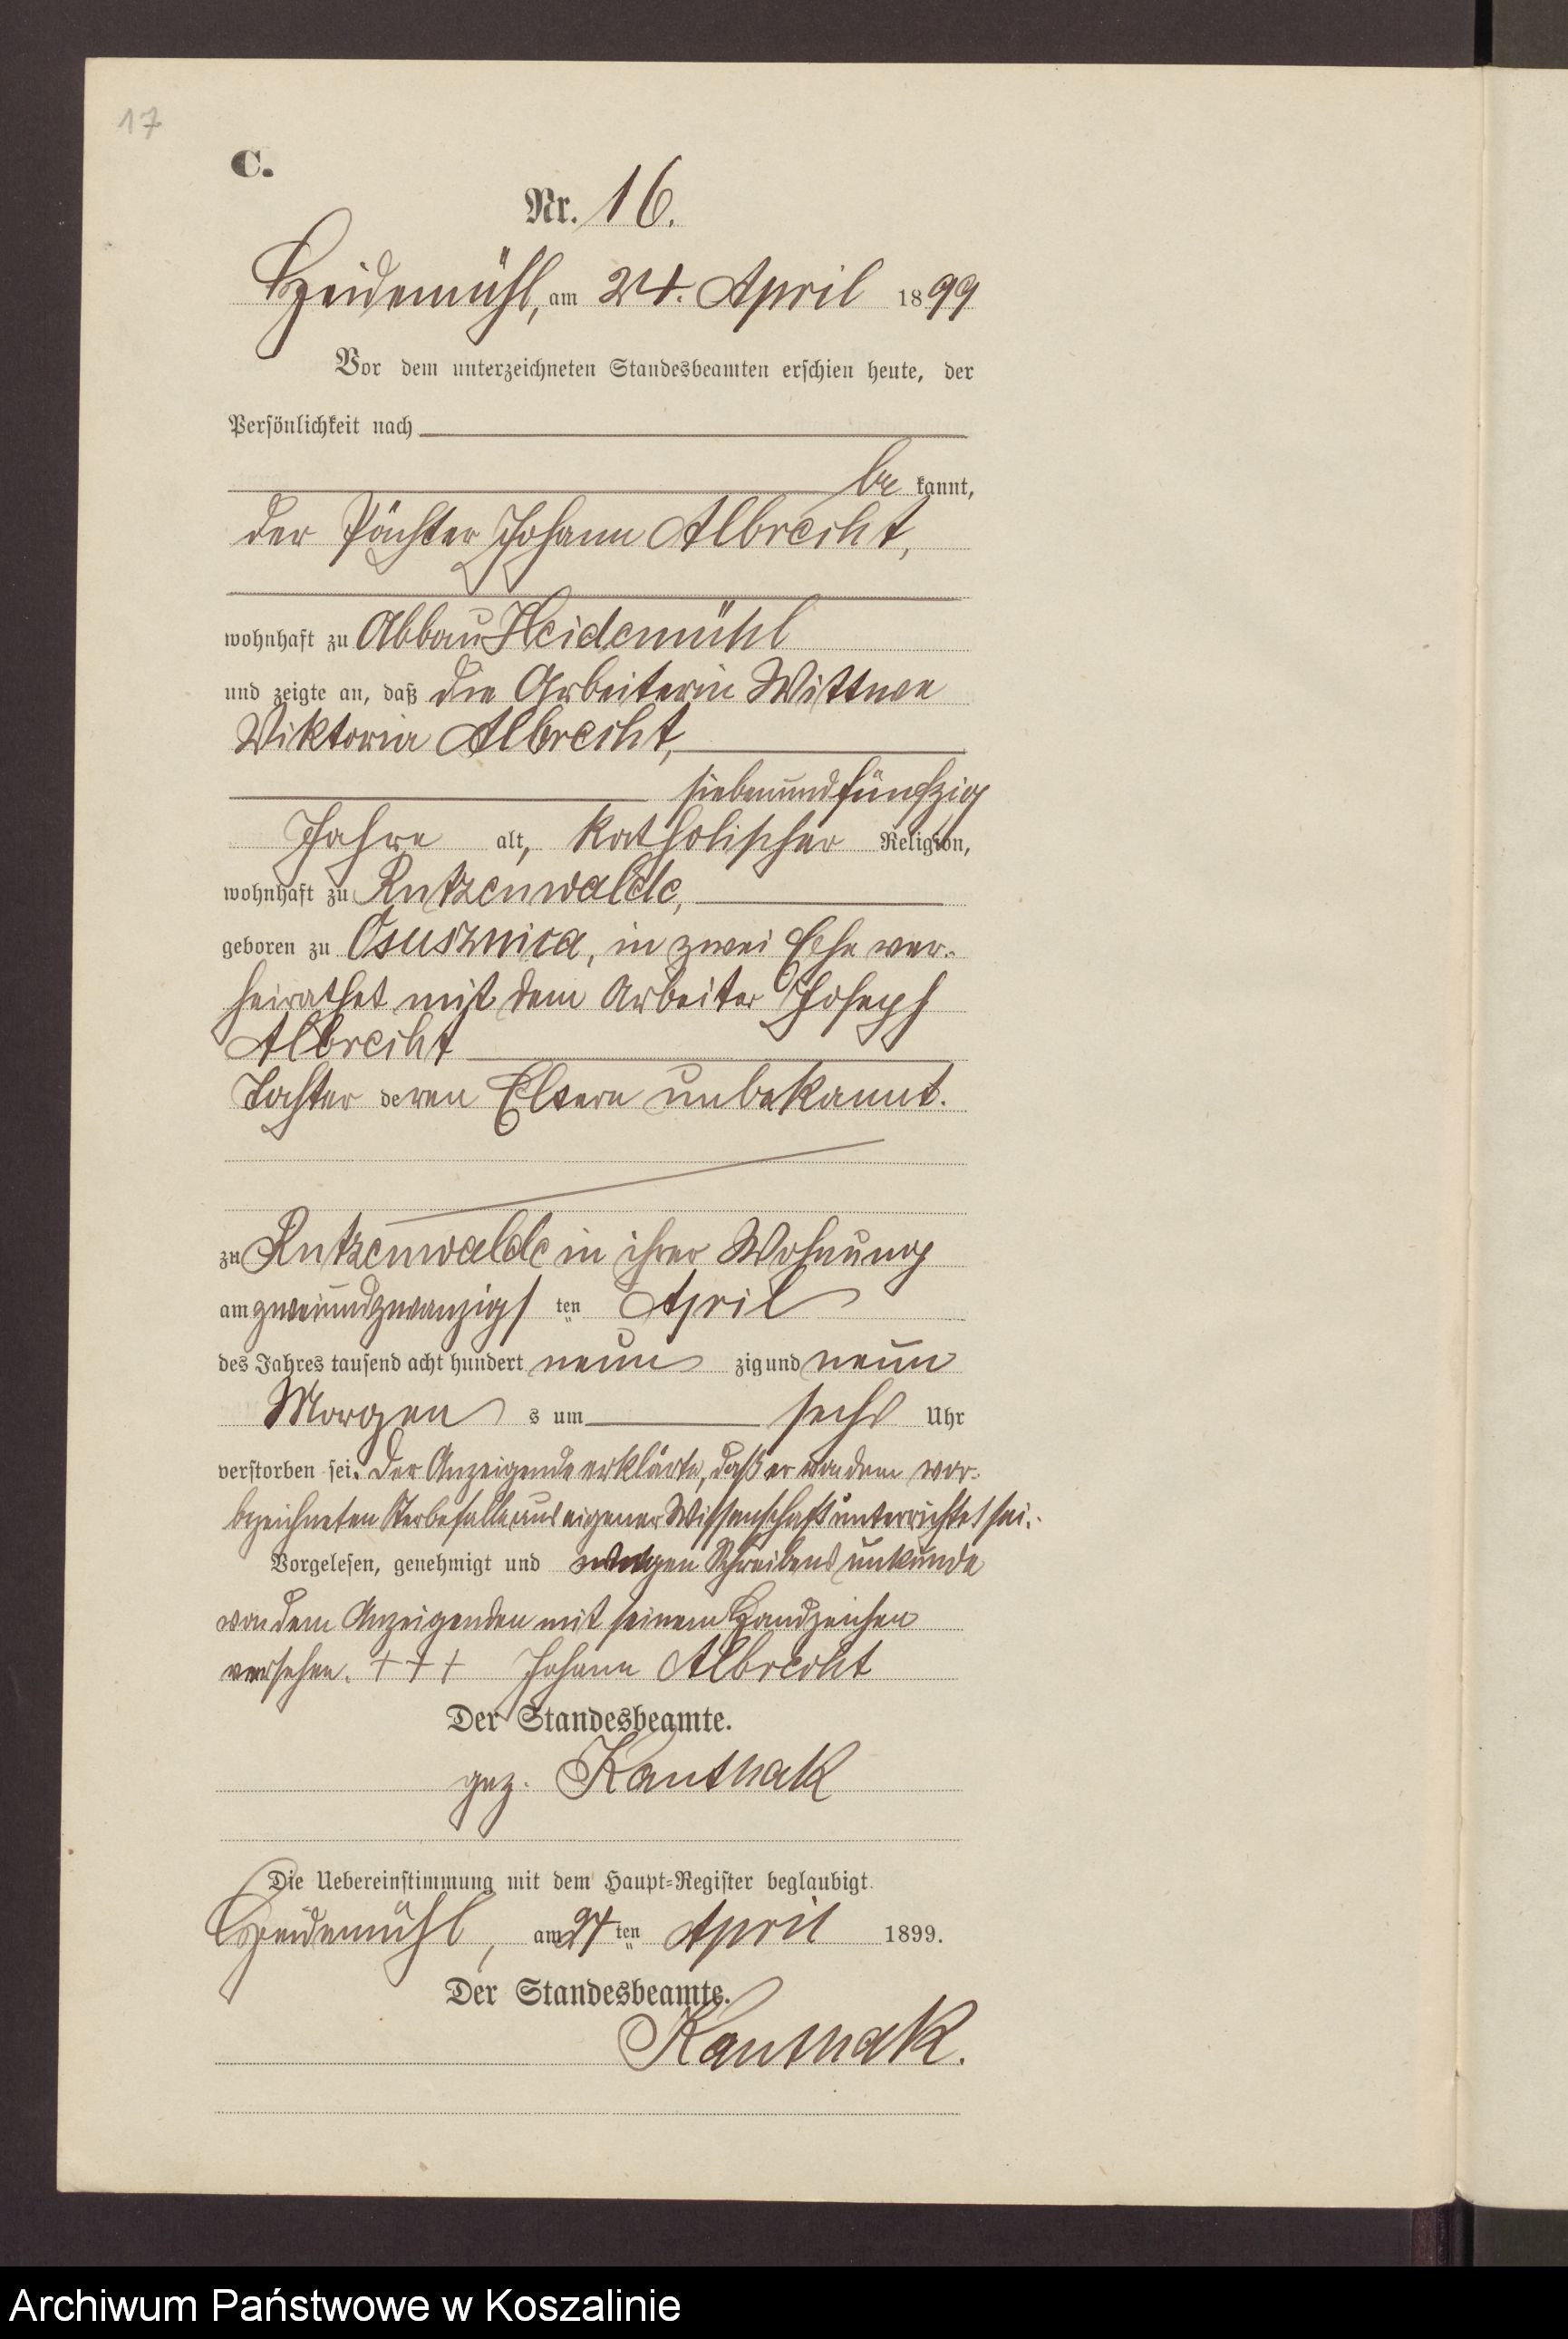 17
C.
Nr. 16.
Heidemühl, am 24. April 1899
Vor dem unterzeichneten Standesbeamten erschien heute, der
Persönlichkeit nach
be kannt,
der Pächter Johann Albrecht,
wohnhaft zu Abbau Heidemühl
und zeigte an, daß die Arbeiterin Wittwe
Viktoria Albrecht,
siebenundfünfzig
Jahre alt, katholischer Religion,
wohnhaft zu Rutzenwalde,
geboren zu Osusznica, in zwei Ehe ver-
heirathet mit dem Arbeiter Joseph
Albrecht
Tochter deren Eltern unbekannt.
zu Rutzenwalde in ihrer Wohnung
am zweiundzwanzigs ten April
des Jahres tausend acht hundert neun zig und neun
Morgen s um sechs Uhr
verstorben sei. Der Anzeigende erklärte, daß er von dem vor-
bezeichneten Sterbefalle aus eigener Wissenschaft unterrichtet sei.
Vorgelesen, genehmigt und wegen Schreibens unkunde
von dem Anzeigenden mit seinem Handzeichen
versehen. +++ Johann Albrecht
Der Standesbeamte.
gez. Kanthak
Die Uebereinstimmung mit dem Haupt-Register beglaubigt.
Heidemühl, am 24 ten April 1899.
Der Standesbeamte.
Kanthak.
Archiwum Państwowe w Koszalinie